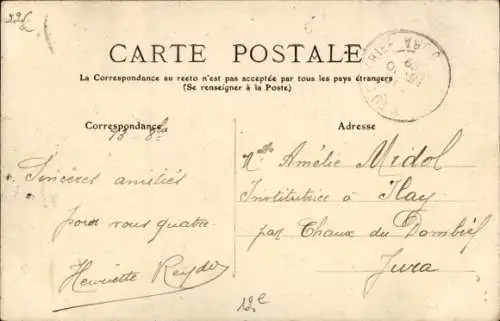 CARTE POSTALE
La Correspondance au recto n'est pas acceptée par tous les pays étrangers
(Se renseigner à la Poste)
Correspondance
Adresse
Sincères amitiés
pour vous quatre
Henriette
Mlle Amélie Midol
Institutrice à Ilay
par Chaux du Dombief
Jura